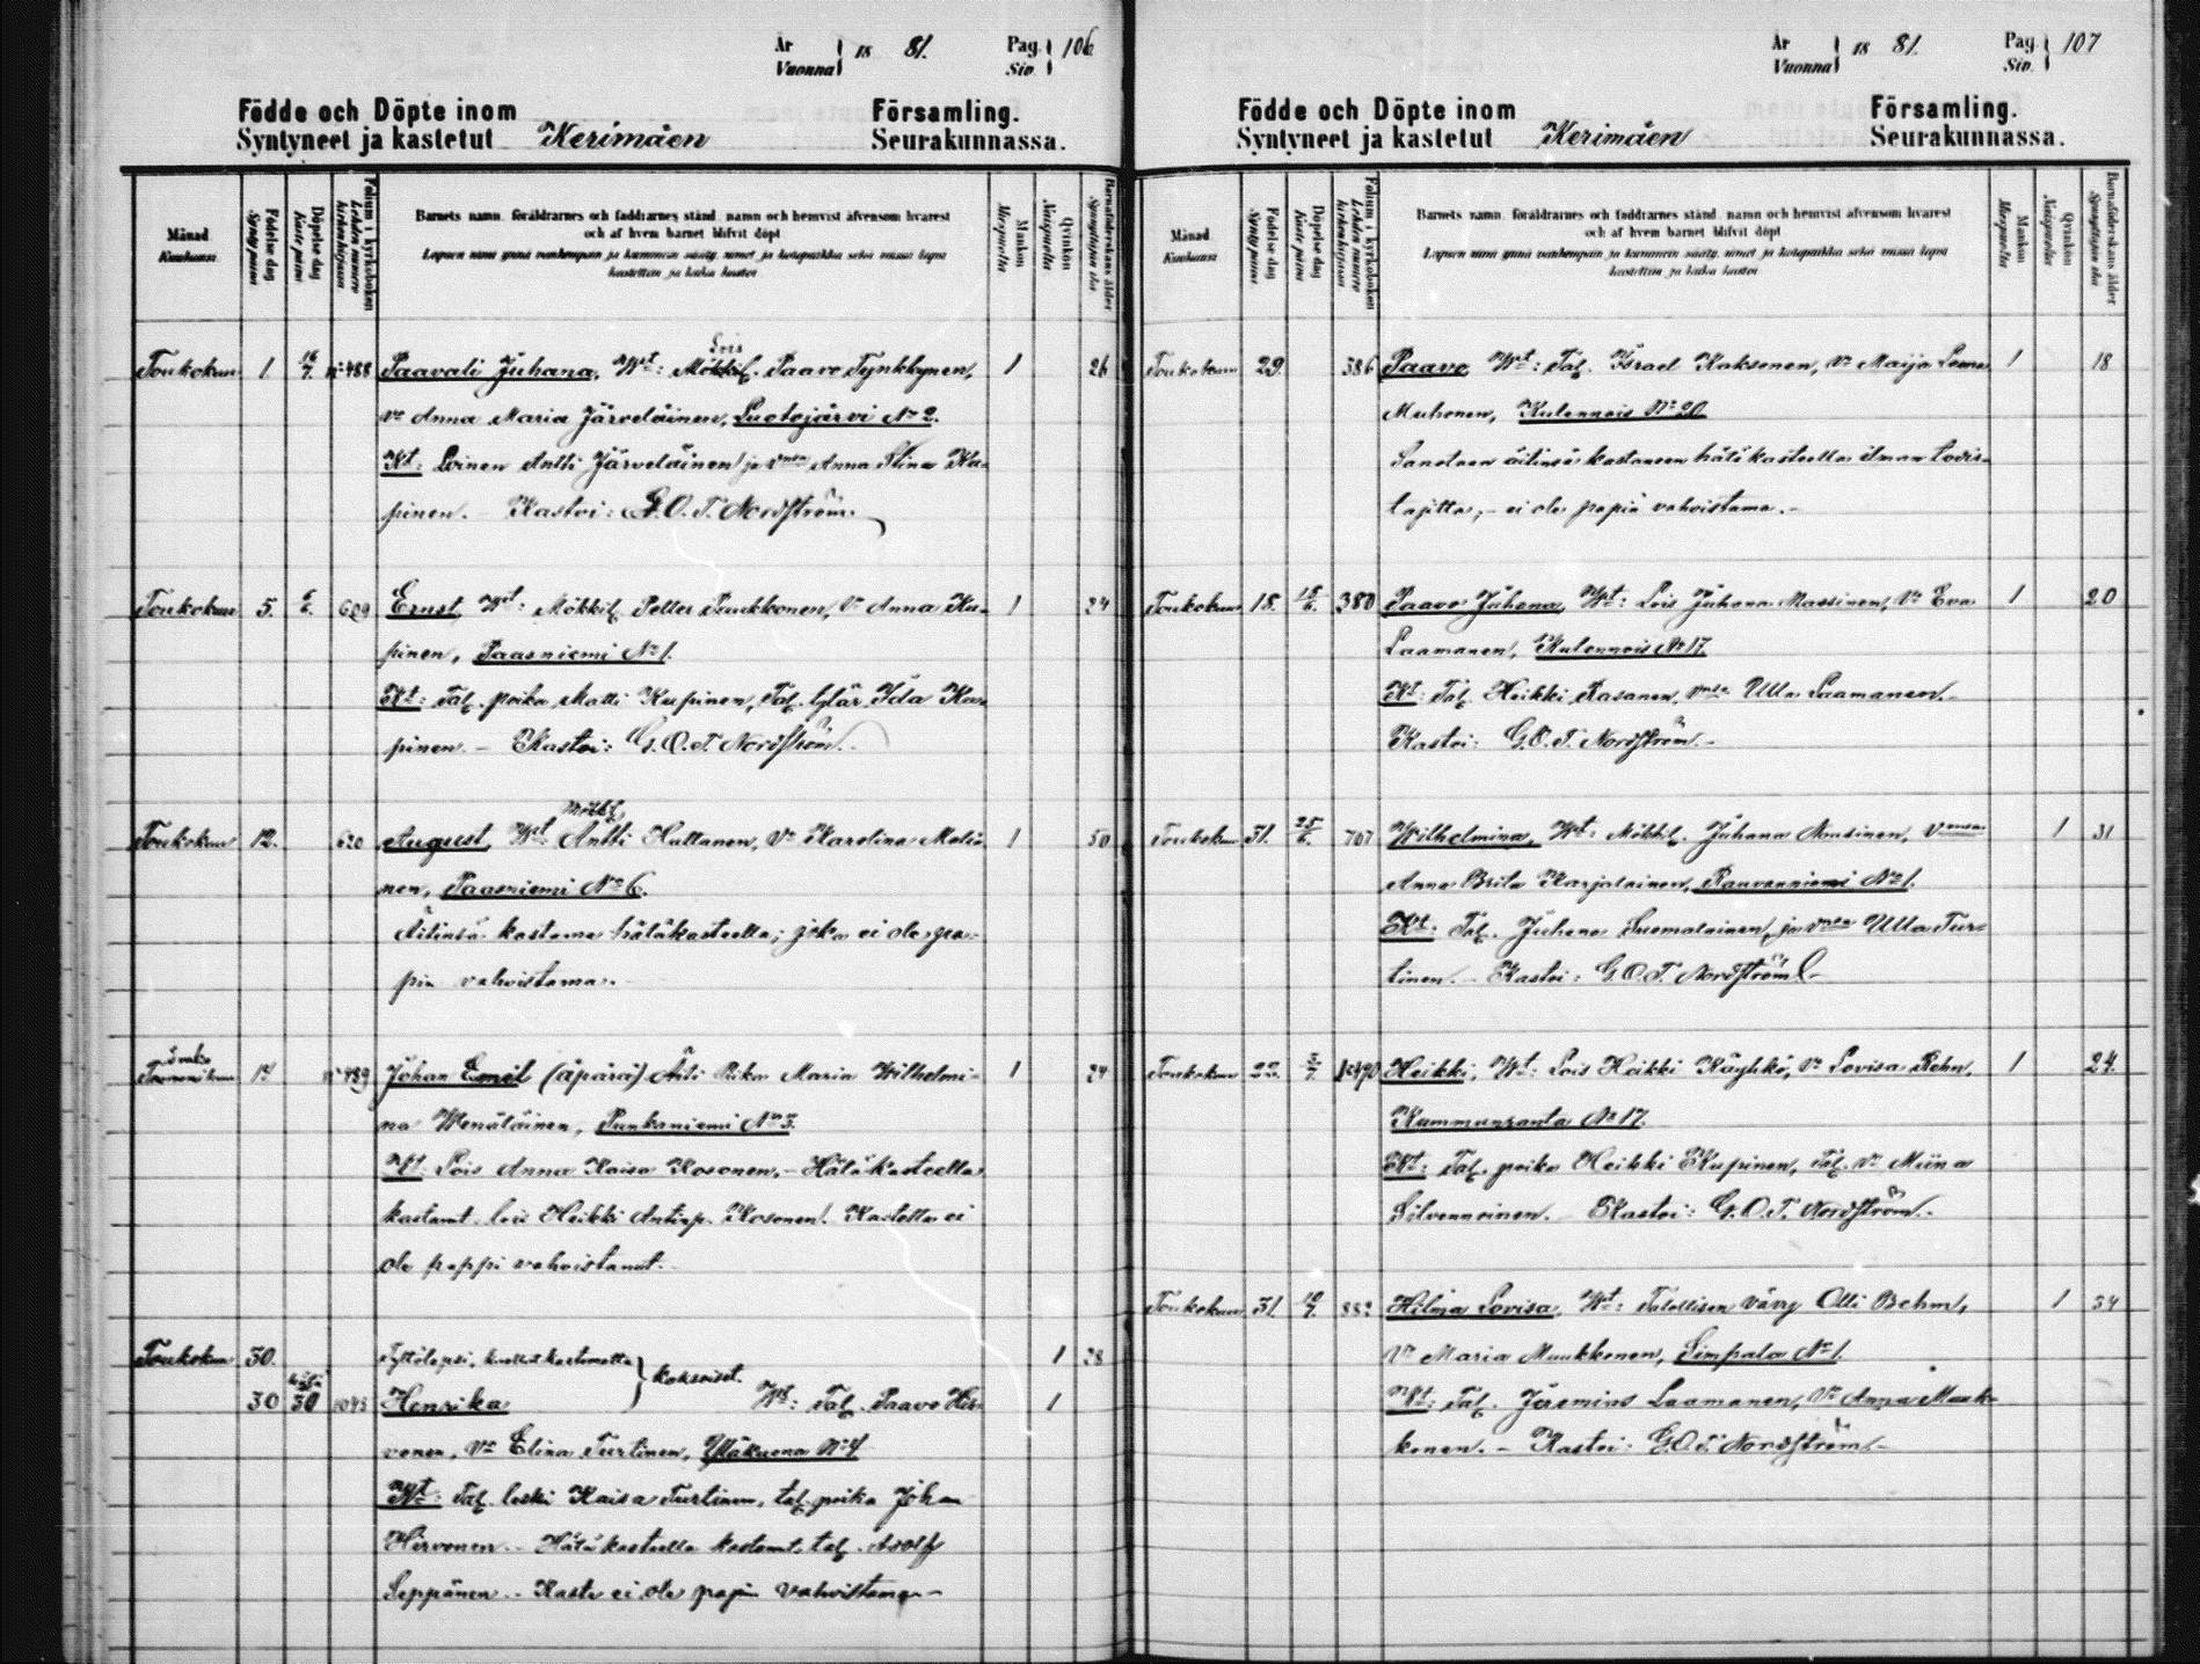 År Vuonna 18 81. Pag. Siv. 106
Födde och Döpte inom Församling.
Syntyneet ja kastetut Kerimäen Seurakunnassa.
Månad Kuukausi
Födelse dag Synty päivä
Döpelse dag Kaste päivä
Folium i kyrkoboken Lehden numero kirkonkirjassa
Barnets namn, föräldrarnes och faddrarnes stånd, namn och hemvist äfvensom hvarest
och af hvem barnet blifvit döpt
Lapsen nimi ynnä vanhempain ja kummein sääty, nimet ja kotopaikka sekä missä lapsi
kastettiin ja kuka kastoi
Mankön Miespuolta
Qvinkön Naispuolta
Barnaföderskans ålder Synnyttäjän ikä
Toukokuu 1. 16/7. 488 Paavali Juhana, Wt: Lois Paavo Tynkkynen, 1 26
vo Anna Maria Järveläinen, Luotojärvi No 2.
Kt: Loinen Antti Järveläinen ja vmsa Anna Stina Ku-
pinen. - Kastoi: G.O.T. Nordström.
Toukokuu 5. 6/6. 609 Ernst, Wt: Mökkil. Petter Puukkonen, Vo Anna Ku- 1 24
pinen, Paasniemi No 1.
Kt: Tal. poika Matti Kupinen, Tal. tytär Ida Ku-
pinen. - Kastoi: G.O.T. Nordström.
Toukokuu 12. 620 August, Wt Mökkil. Antti Hultanen, Vo Karolina Mati- 1 50
nen, Paasniemi No 6.
Äitinsä kastama hätäkasteella; joka ei ole pa-
pin vahvistama.
14 489 Johan Emil (äpärä) Äiti Piika Maria Wilhelmi- 1 24
na Wenäläinen, Punkaniemi No 3.
Kt: Lois Anna Kaisa Kosonen. - Hätäkasteella
kastanut lois Heikki Antinp. Kosonen. Kastetta ei
ole pappi vahvistanut.
Toukokuu 30. Tyttölapsi, kuollut kastamatta 1 38
30 hätä 30 1043 Henrika } kaksoiset. Wt: Tal. Paavo Hir- 1
vonen, Vo Elina Turtinen, Yläkuona No 4
Kt: Tal. leski Kaisa Turtinen, tal. poika Johan
Hirvonen. - Hätäkasteella kastanut tal. Adolf
Seppänen. - Kaste ei ole papin vahvistama -
År Vuonna 18 81. Pag. Siv. 107
Födde och Döpte inom Församling.
Syntyneet ja kastetut Kerimäen Seurakunnassa.
Månad Kuukausi
Födelse dag Synty päivä
Döpelse dag Kaste päivä
Folium i kyrkoboken Lehden numero kirkonkirjassa
Barnets namn, föräldrarnes och faddrarnes stånd, namn och hemvist äfvensom hvarest
och af hvem barnet blifvit döpt
Lapsen nimi ynnä vanhempain ja kummein sääty, nimet ja kotopaikka sekä missä lapsi
kastettiin ja kuka kastoi
Mankön Miespuolta
Qvinkön Naispuolta
Barnaföderskans ålder Synnyttäjän ikä
Toukokuu 29. 386 Paavo, Wt: Tal. Israel Kaksonen, Vo Maija Leena 1 18
Muhonen, Kulennois No 20
Sanotaan äitinsä kastaneen hätäkasteella ilman todis-
tajitta; - ei ole papin vahvistama. -
Toukokuu 18. 18/6. 380 Paavo Juhana, Wt: Lois Juhana Massinen, Vo Eva 1 20
Laamanen, Kulennois No 17.
Kt: Tal. Heikki Rasanen, vmsa Ulla Laamanen.
Kastoi: G.O.T. Nordström. -
Toukokuu 31. 25/6. 707 Wilhelmina, Wt: Mökkil. Juhana Nousinen, Vmsa 1 31
Anna Brita Karjalainen, Rauvanniemi No 1.
Kt: Tal. Juhana Suomalainen, ja vmsa Ulla Tur-
tinen. - Kastoi: G.O.T. Nordström -
Toukokuu 22. 3/7. 1290 Heikki, Wt: Lois Heikki Käyhkö, Vo Lovisa Rehn, 1 24.
Kummunranta No 17.
Kt: Tal. poika Heikki Kupinen, Tal. Vo Miina
Silvennoinen. - Kastoi: G.O.T. Nordström. -
Toukokuu 31. 10/7. 882 Hilma Lovisa, Wt: Talollisen vävy Olli Behm, 1 34
Vo Maria Muukkonen, Simpala No 1.
Kt: Tal. Jeremias Laamanen, Vo Anna Muuk-
konen. - Kastoi: G.O.T. Nordström -